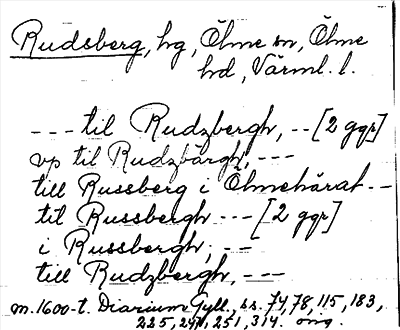 Rudsberg, hg, Ölme sn, Ölme
hd, Värml. l.
--- til Rudzbergh, -- [2 ggr]
vp til Rudzbärgh, ---
till Russberg i Ölmehärat --
til Russbergh --- [2 ggr]
i Russbergh, --
till Rudzbergh, ---
m. 1600-t. Diarium Gyll., ss. 74, 78, 115, 183,
225, 241, 251, 314. orig.